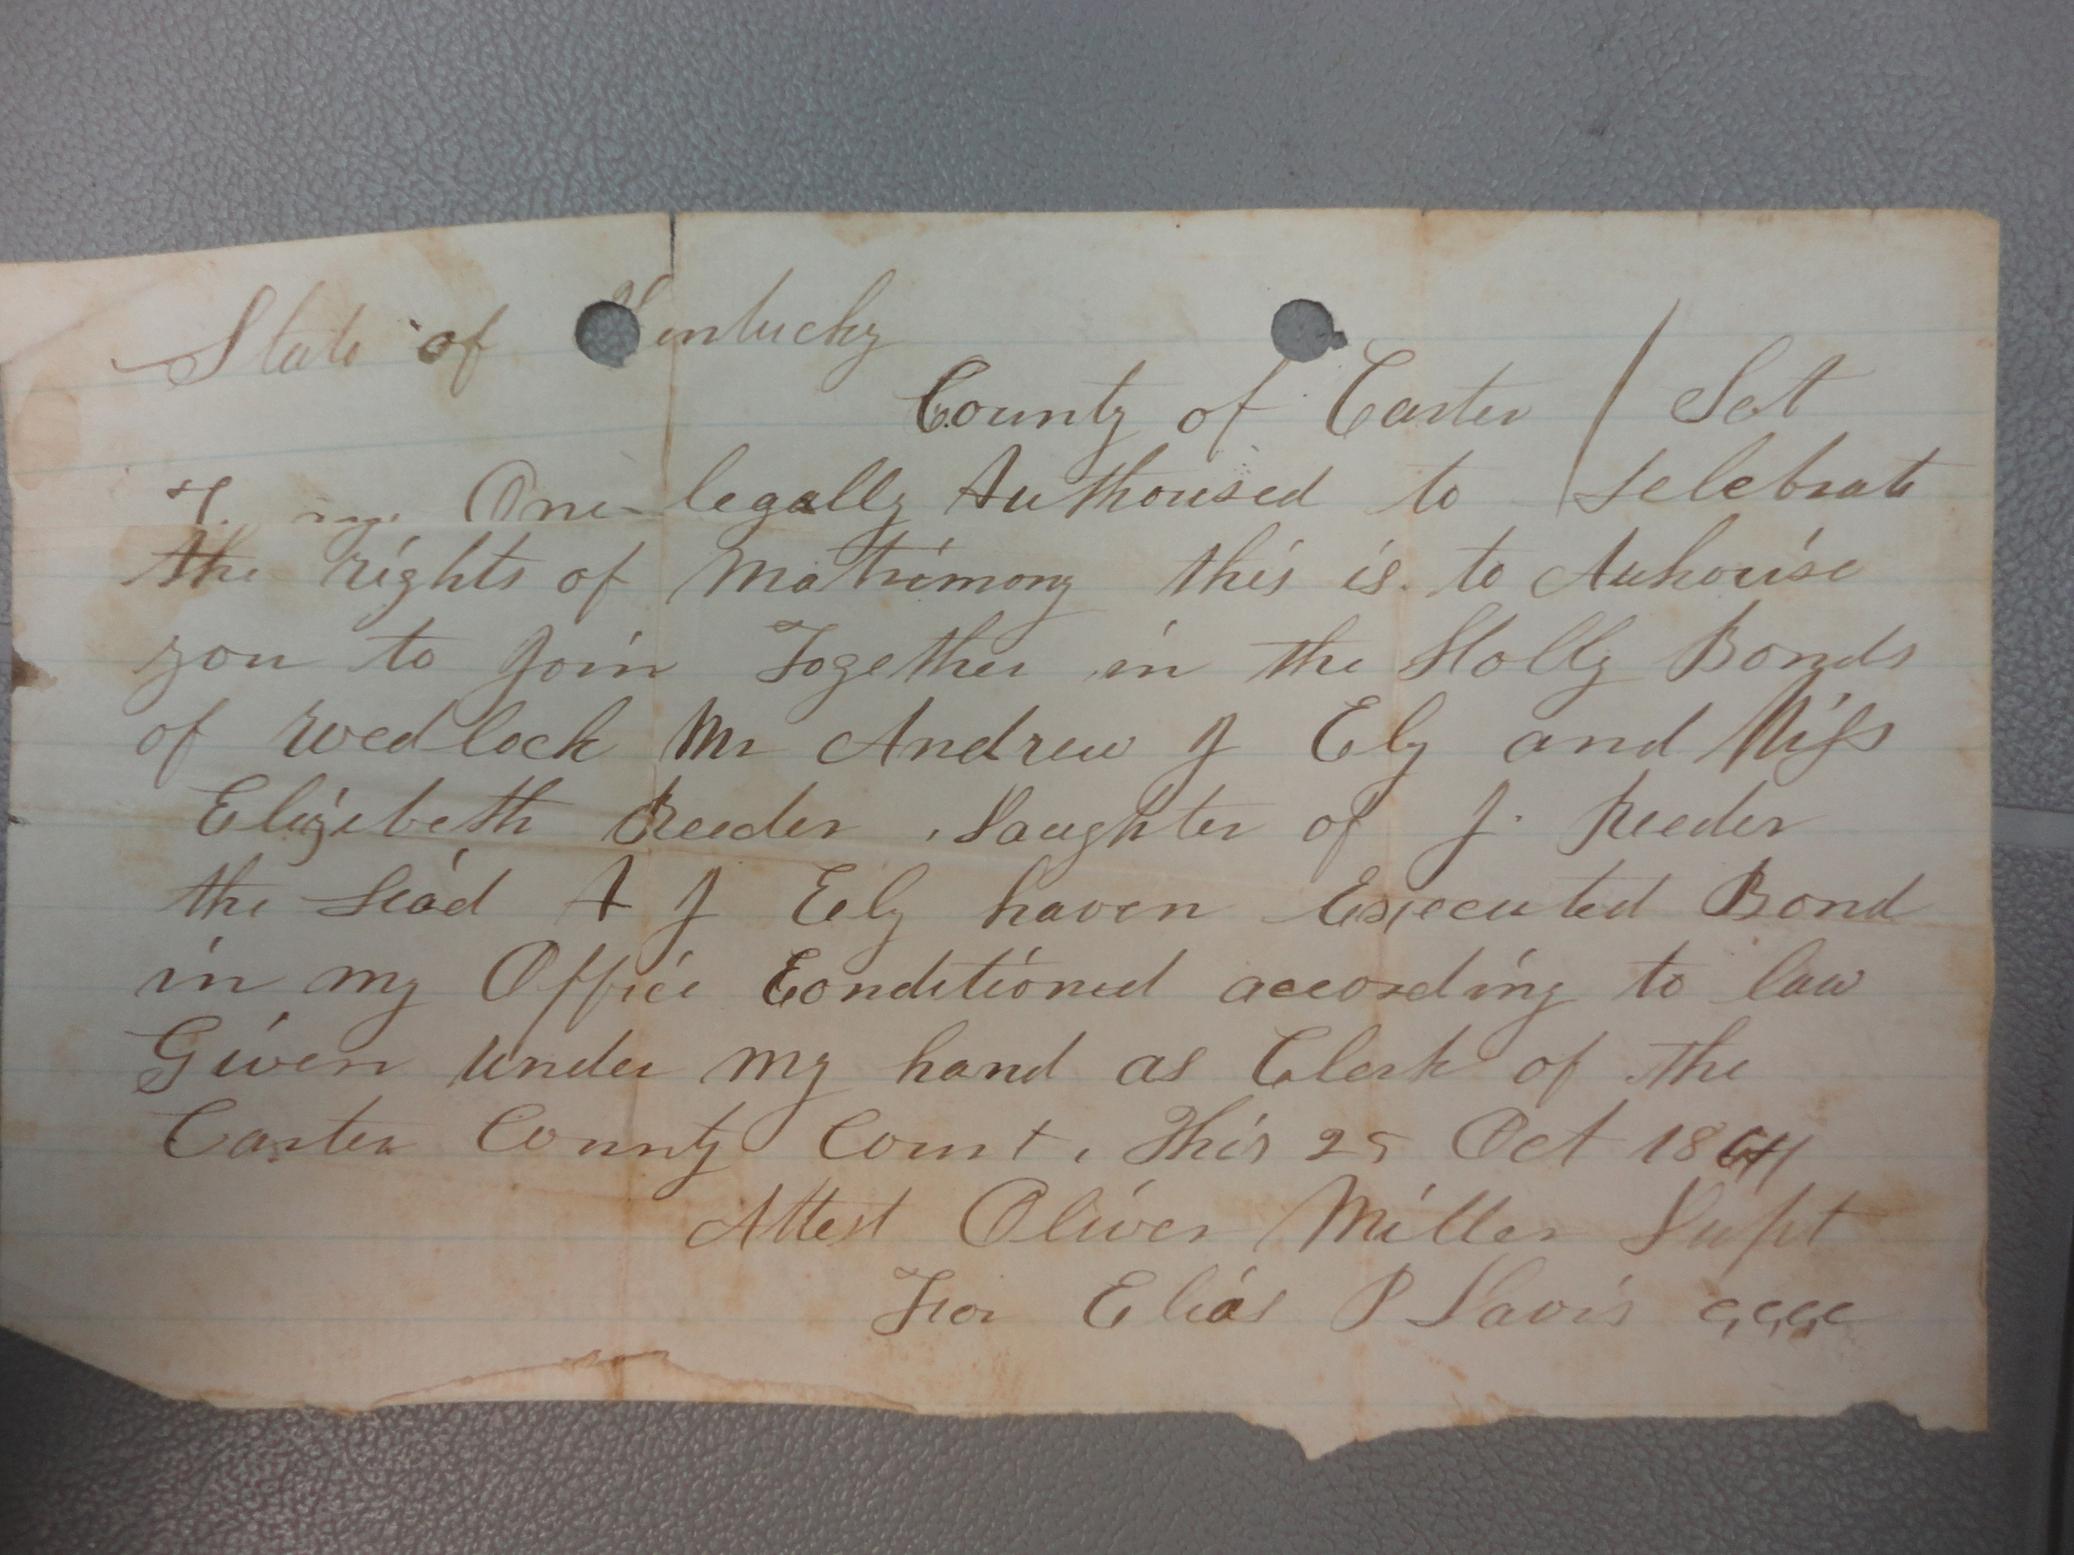 State of Kentucky
County of Carter Sct
To any One legally Authorised to Selebrate
the rights of Matrimony this is to Auhorise
you to Join Together in the Holly Bonds
of Wedlock Mr Andrew J Ely and Miss
Elizibeth Reeder Daughter of J. Reeder
the Siad A J Eely haven Executed Bond
in my Office Conditioned according to law
Given under my hand as Clerk of the
Carter County Court, This 25 Oct 1864
Attest Oliver Miller Dept
For Elias P Davis CCCC